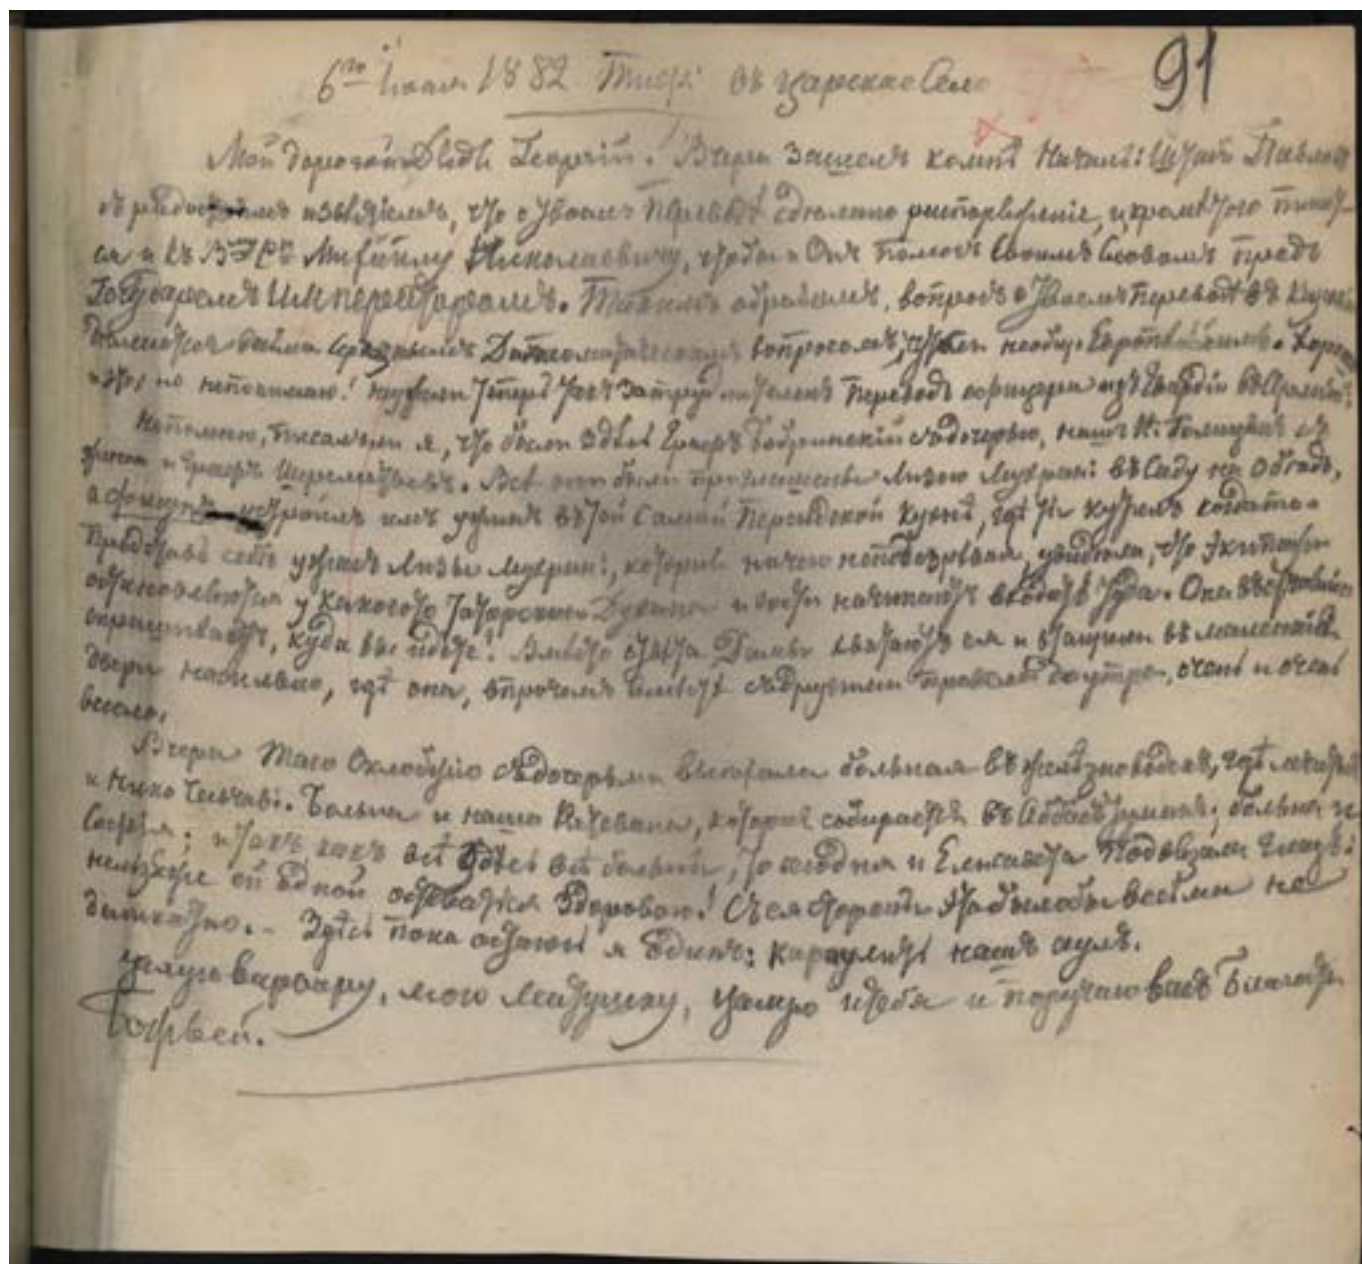 91
6го Іюля 1882 Тифл: въ Царское Село
Мой дорогой Дѣдъ Георгій! Вчера зашелъ ко мнѣ Начал: Штаб Павловъ
съ извѣстіемъ, что о твоемъ переводѣ сдѣлано распоряженіе, и кромѣ того пишет-
ся и къ Михаилу Николаевичу, чтобы и Онъ помогъ Своимъ Словомъ предъ
Государемъ Императоромъ. Такимъ образомъ, вопросъ о твоемъ переводѣ въ
вопросомъ, необщ:
это, но непонимаю! теперь такъ затруднителенъ переводъ офицера изъ Гвардіи въ Армію?
Непомню, писалъ ли я, что были здѣсь Графъ Бобринскій съ дочерью, нашъ Н. Голицынъ съ
женою и Графъ Шереметьевъ. Всѣ они были приглашены Лизою Мухран: въ Саду на Обѣдъ,
а устроилъ имъ ужинъ въ той самой Персидской кухнѣ, гдѣ ты кутилъ когда то.
Представь себѣ ужасъ Лизы Мухран:, которая ничего неподозрѣвая, увидѣла, что экипажи
остановляются у какого то татарскаго Духана и гости начинаютъ входить туда. Она
спрашиваетъ, куда вы идете! Вмѣсто отвѣта Дамы хватаютъ ея и втащили въ маленькія
двери насильно, гдѣ она, впрочемъ вмѣстѣ съ другими провела до утра, очень и очень
весело.
Вчера Тасо Оклобжіо съ дочерьми выѣхали больная въ Желѣзноводскъ, гдѣ лечится
и Нико Чавчав:. Больна и наша Кетевана, которая собирается въ Аббастуманъ; больна и
Софія; и такъ какъ всѣ здѣсь всѣ больны, то сегодня и Елисавета подвязали глазъ:
нельзя же ей одной оставатся здоровою! Съ ея стороны это былобы весьма не
деликатно. - Здѣсь пока остаюсь я одинъ: караулить нашъ аулъ.
Цалую Варвару, мою Матушку, цалую и тебя и поручаю васъ Благодати
Божьей.